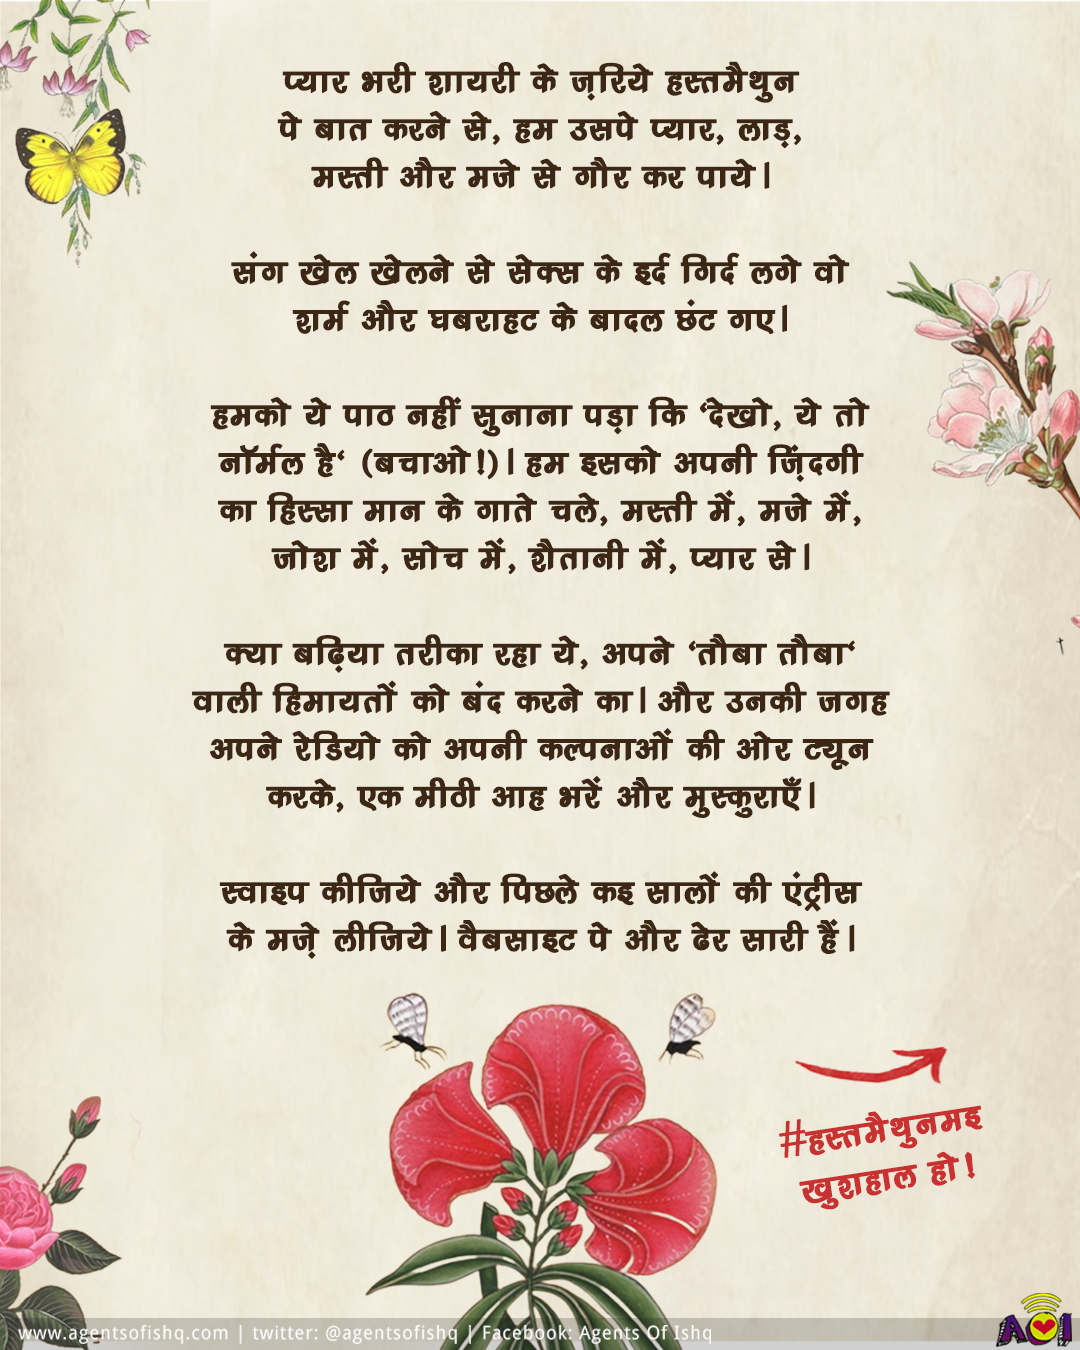 प्यार भरी शायरी के ज़रिये हस्तमैथुन
पे बात करने से, हम उसपे प्यार, लाड़,
मस्ती और मजे से गौर कर पाये।
संग खेल खेलने से सेक्स के इर्द गिर्द लगे वो
शर्म और घबराहट के बादल छंट गए।
हमको ये पाठ नहीं सुनाना पड़ा कि ‘देखो, ये तो
नॉर्मल है‘ (बचाओ!)। हम इसको अपनी ज़िंदगी
का हिस्सा मान के गाते चले, मस्ती में, मजे में,
जोश में, सोच में, शैतानी में, प्यार से।
क्या बढ़िया तरीका रहा ये, अपने ‘तौबा तौबा‘
वाली हिमायतों को बंद करने का। और उनकी जगह
अपने रेडियो को अपनी कल्पनाओं की ओर ट्यून
करके, एक मीठी आह भरें और मुस्कुराएँ।
स्वाइप कीजिये और पिछले कइ सालों की एंट्रीस
के मज़े लीजिये। वैबसाइट पे और ढेर सारी हैं।
#हस्तमैथुनमइ
खुशहाल हो!
www.agentsofishq.com | twitter: @agentsofishq | Facebook: Agents Of Ishq
AOI